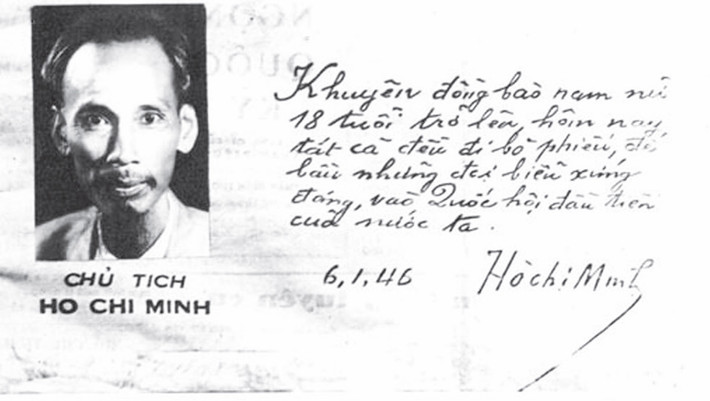 Khuyên đồng bào nam nữ
18 tuổi trở lên, hôm nay
tất cả đều đi bỏ phiếu, để
bầu những đại biểu xứng
đáng, vào Quốc hội đầu tiên
của nước ta.
6,1,46 Hồ Chí Minh
CHỦ TỊCH
HO CHI MINH